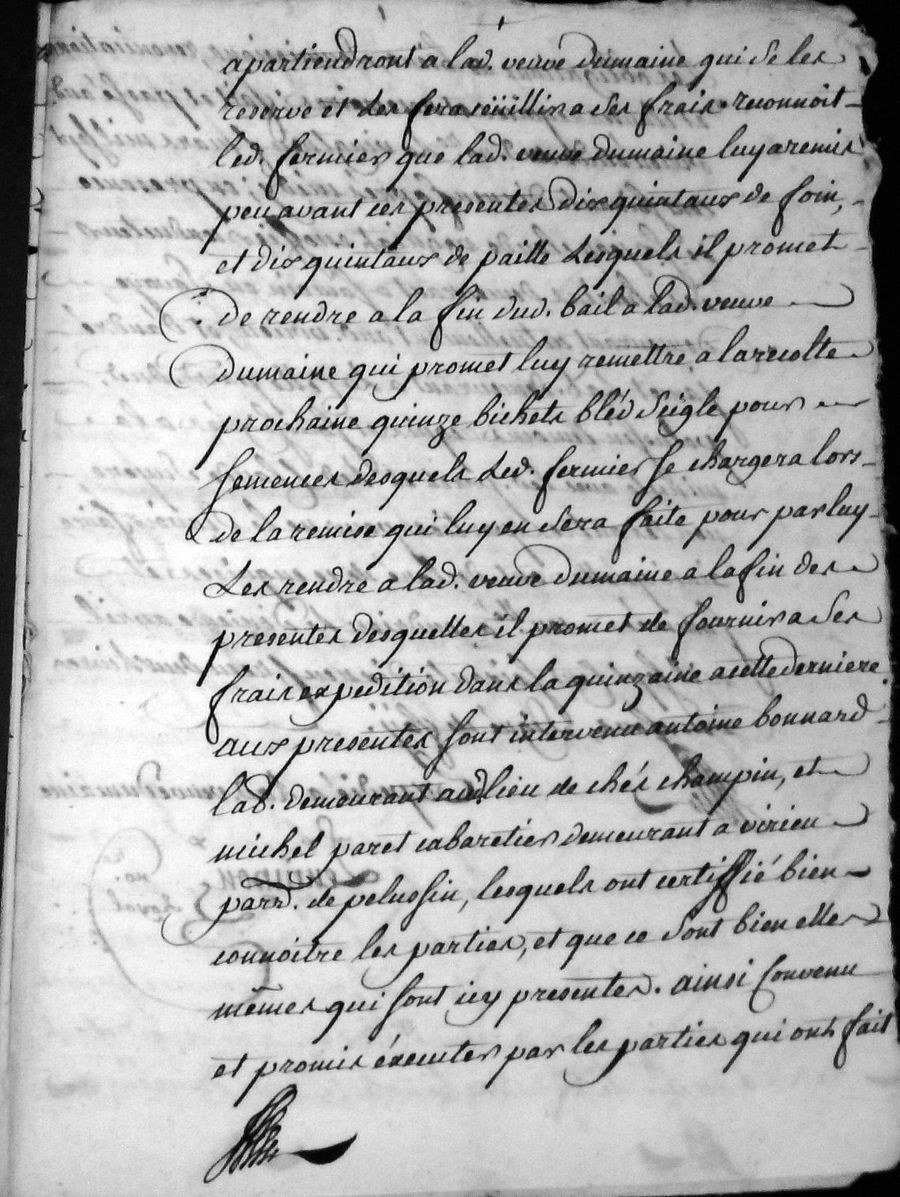 apartiendront a lad. veuve dumaine qui se les
reserve et les fera ceüillir a ses frais reconnoit
led. fermier que lad. veuve dumaine luy a remis
peu avant ces presentes dix quintaux de foin,
et dix quintaux de paille lesquels il promet
de rendre a la fin dud. bail a lad. veuve
dumaine qui promet luy remettre a la recolte
prochaine quinze bichets bléd seigle pour
semences desquels led. fermier se chargera lors
de la remise qui luy en sera faite pour par luy
les rendre a lad. veuve dumaine a la fin des
presentes desquelles il promet de fournir a ses
frais expedition dans la quinzaine a cette derniere
aux presentes sont intervenu antoine bonnard
lab. demeurant aud. lieu de chés champin, et
michel paret cabaretier demeurant a virieu
parr. de pelussin, lesquels ont certiffié bien
connoitre les parties, et que ce sont bien elles
mêmes qui sont icy presentes. ainsi convenu
et promis éxecuter par les parties qui ont fait